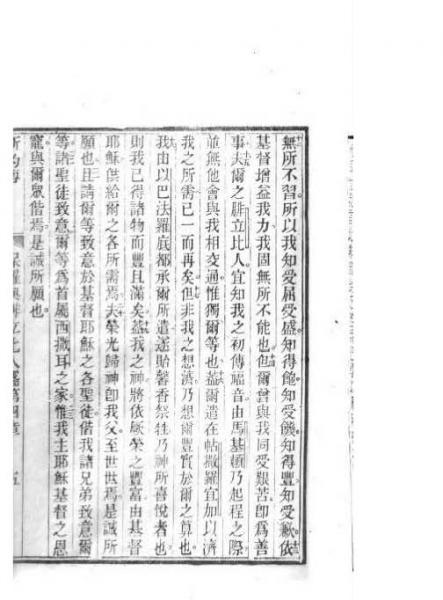 無所不習所以我知受屈受盛知得飽知受饑知得豐知受歉依
基督增益我力我固無所不能也但爾曾與我同受艱苦卽爲善
事夫爾之腓立比人宜知我之初傳福音由馬基頓乃起程之際
並無他會與我相交通惟獨爾等也蓋爾遣在帖撒羅宜加以濟
我之所需已一而再矣但非我之想濟乃想爾豐實於爾之算也
我由以巴法羅底都承爾所遣遂貽馨香祭牲乃神所喜悅者也
則我已得諸物而豐且滿矣蓋我之神將依厥榮之豐富由基督
耶穌供給爾之各所需焉夫榮光歸神卽我父至世世焉是誠所
願也且請爾等致意於基督耶穌之各聖徒偕我諸兄弟致意爾
等諸聖徒致意爾等爲首屬西撒耳之家惟我主耶穌基督之恩
寵與爾眾偕焉是誠所願也